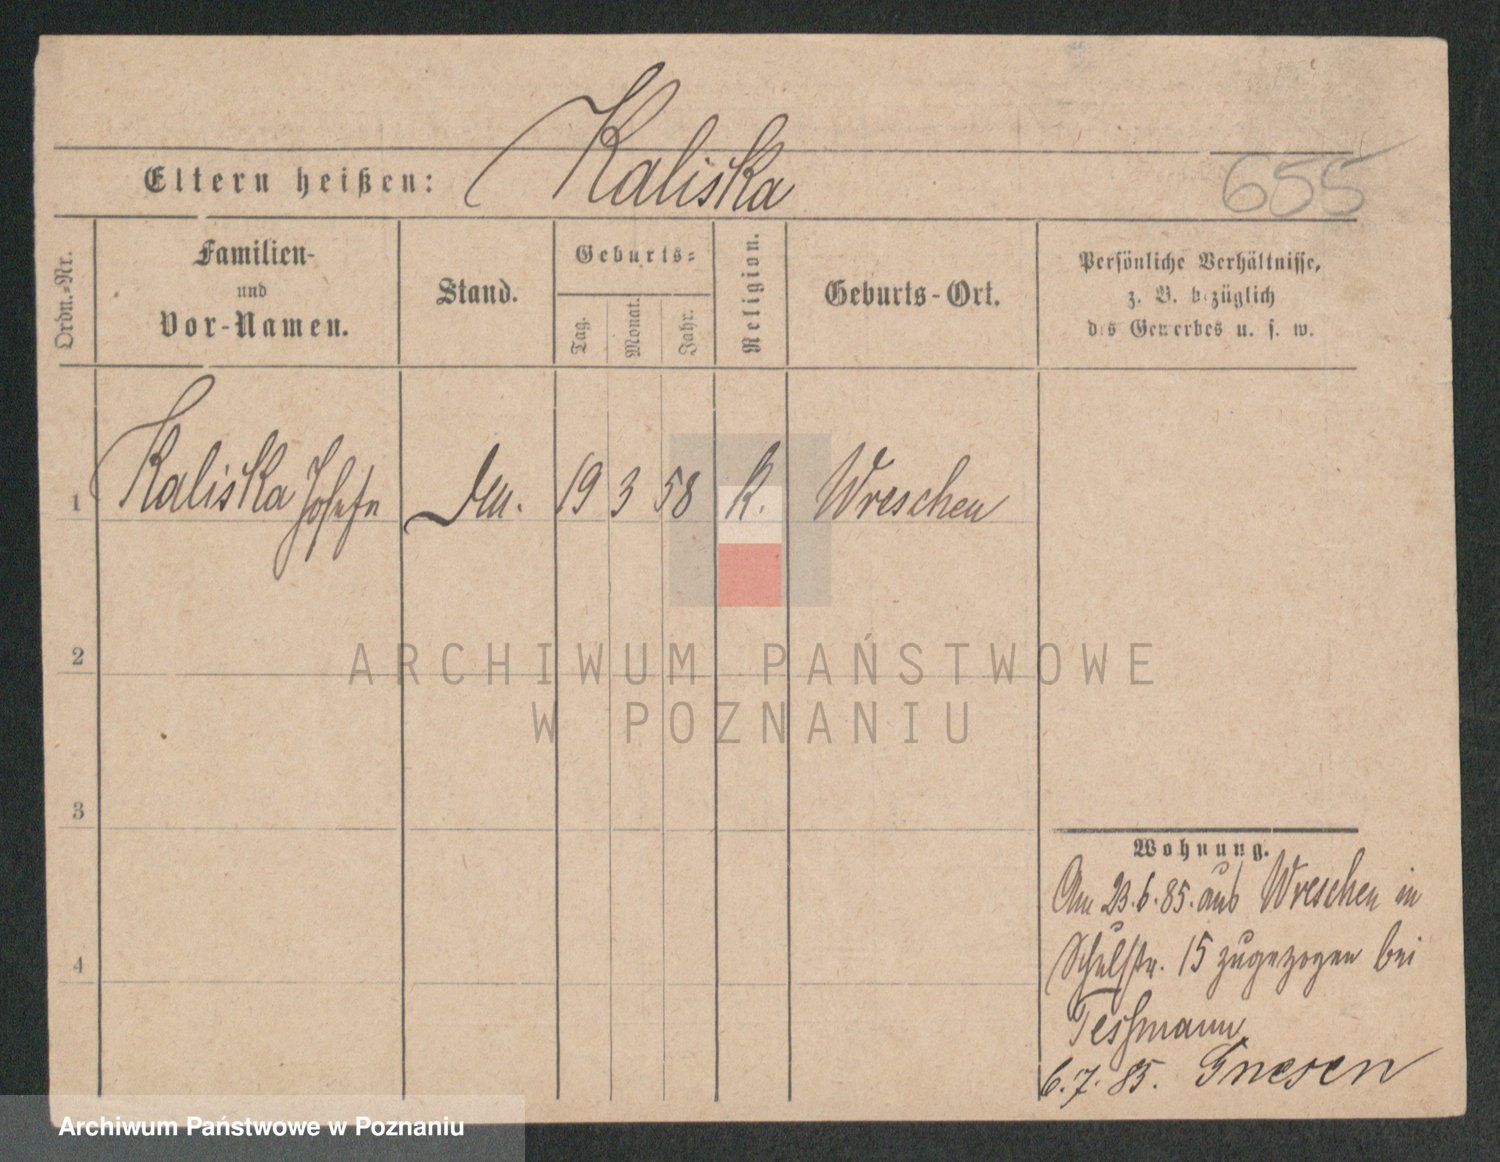 Kaliska
Eltern heißen:
655
Ordn.-Nr.
Familien-
und
Vor-Namen.
Stand.
Geburts-
Tag.
Monat.
Jahr.
Religion.
Geburts-Ort.
Persönliche Verhältnisse,
z. B. bezüglich
des Gewerbes u. s. w.
1 Kaliska Josefa 19 3 58 k. Wreschen
2
3
4
ARCHIWUM PAŃSTWOWE
W POZNANIU
Wohnung.
Am 23.6.85. aus Wreschen in
Schulstr. 15 zugezogen bei
Teshmann
6.7.85. Gnesen
Archiwum Państwowe w Poznaniu